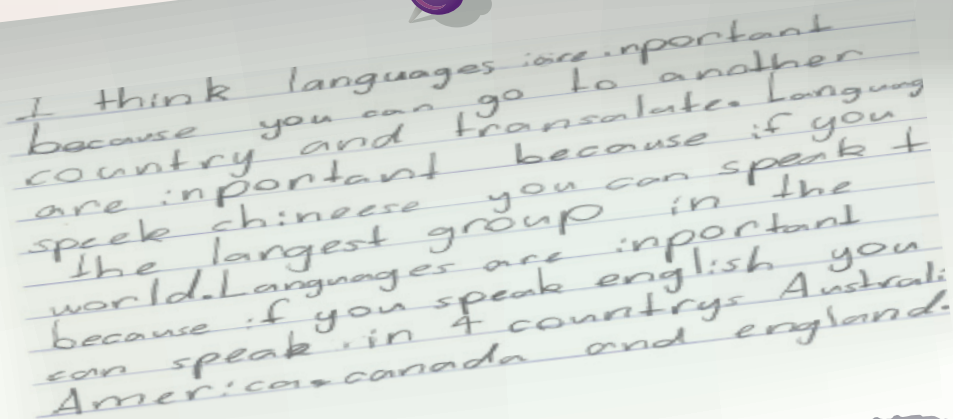 I think languages are inportant
because you can go to another
country and transalate. Languag
are inportant because if you
speek chineese you can speak t
the largest group in the
world. Languages are inportant
because if you speak english you
can speak in 4 countrys Australi
America. canada and england.